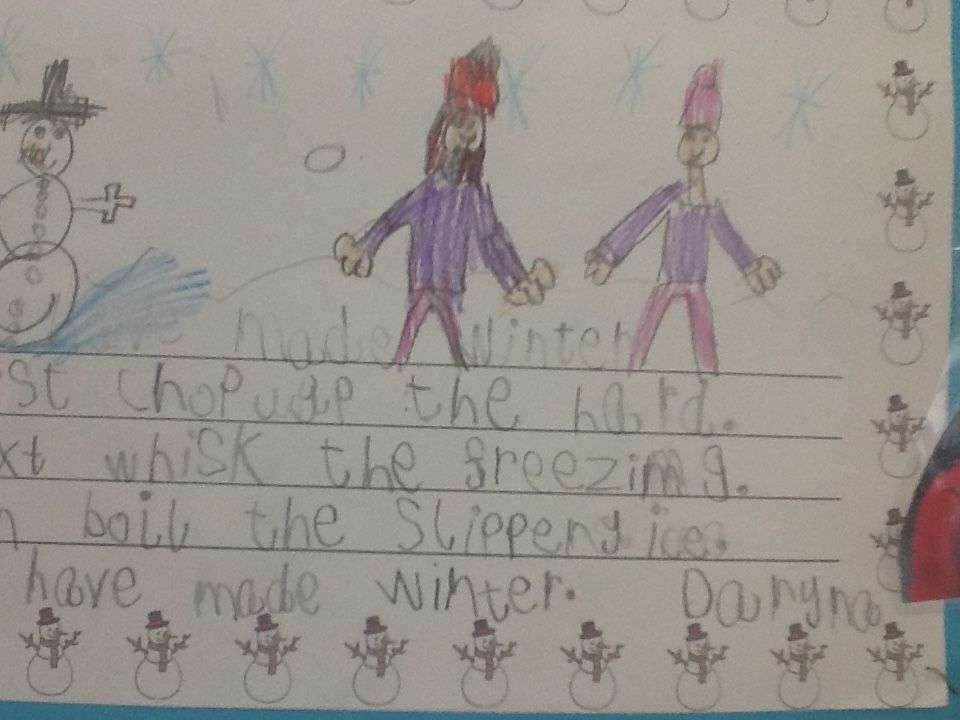 made winter
st chop uap the hard.
xt whisk the freezing.
n boil the slippery ice.
have made winter. Daryna